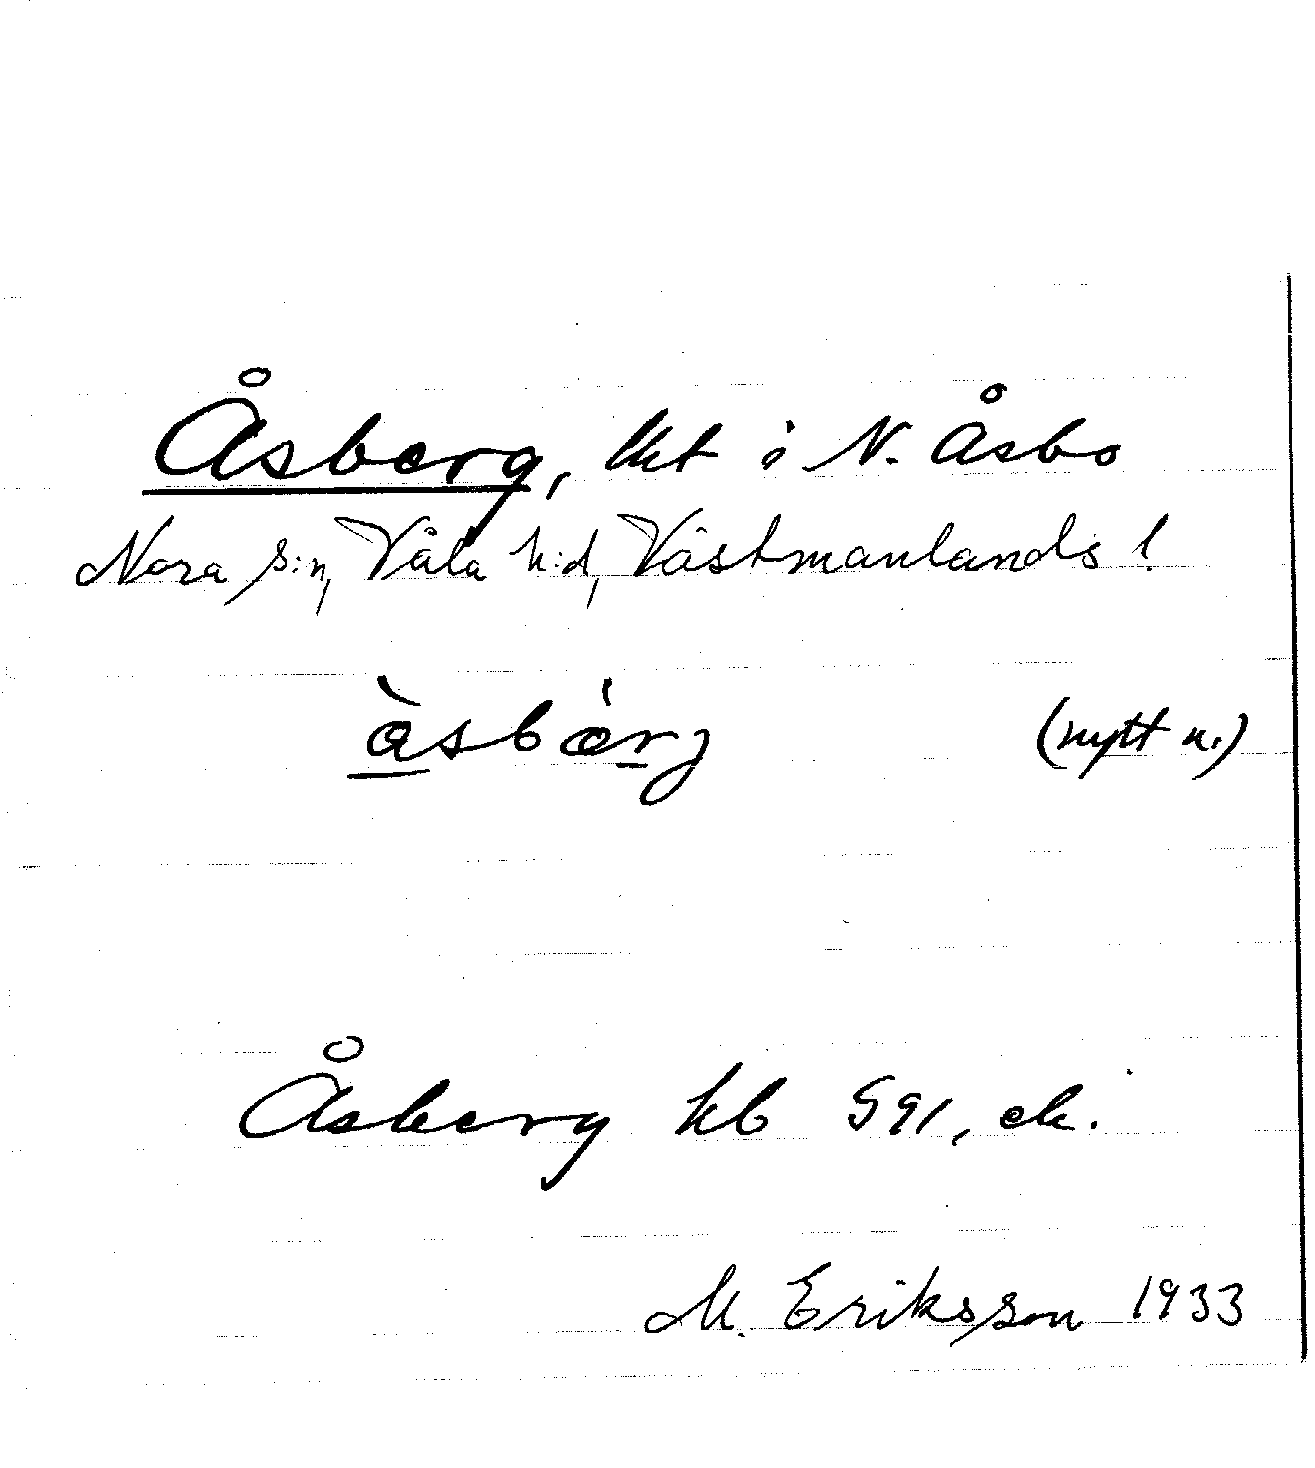 Åsberg, lht i N. Åsbo
Nora s:n, Våla h:d, Västmanlands l.
(nytt n.)
Åsberg hb 591, ek.
M. Eriksson 1933